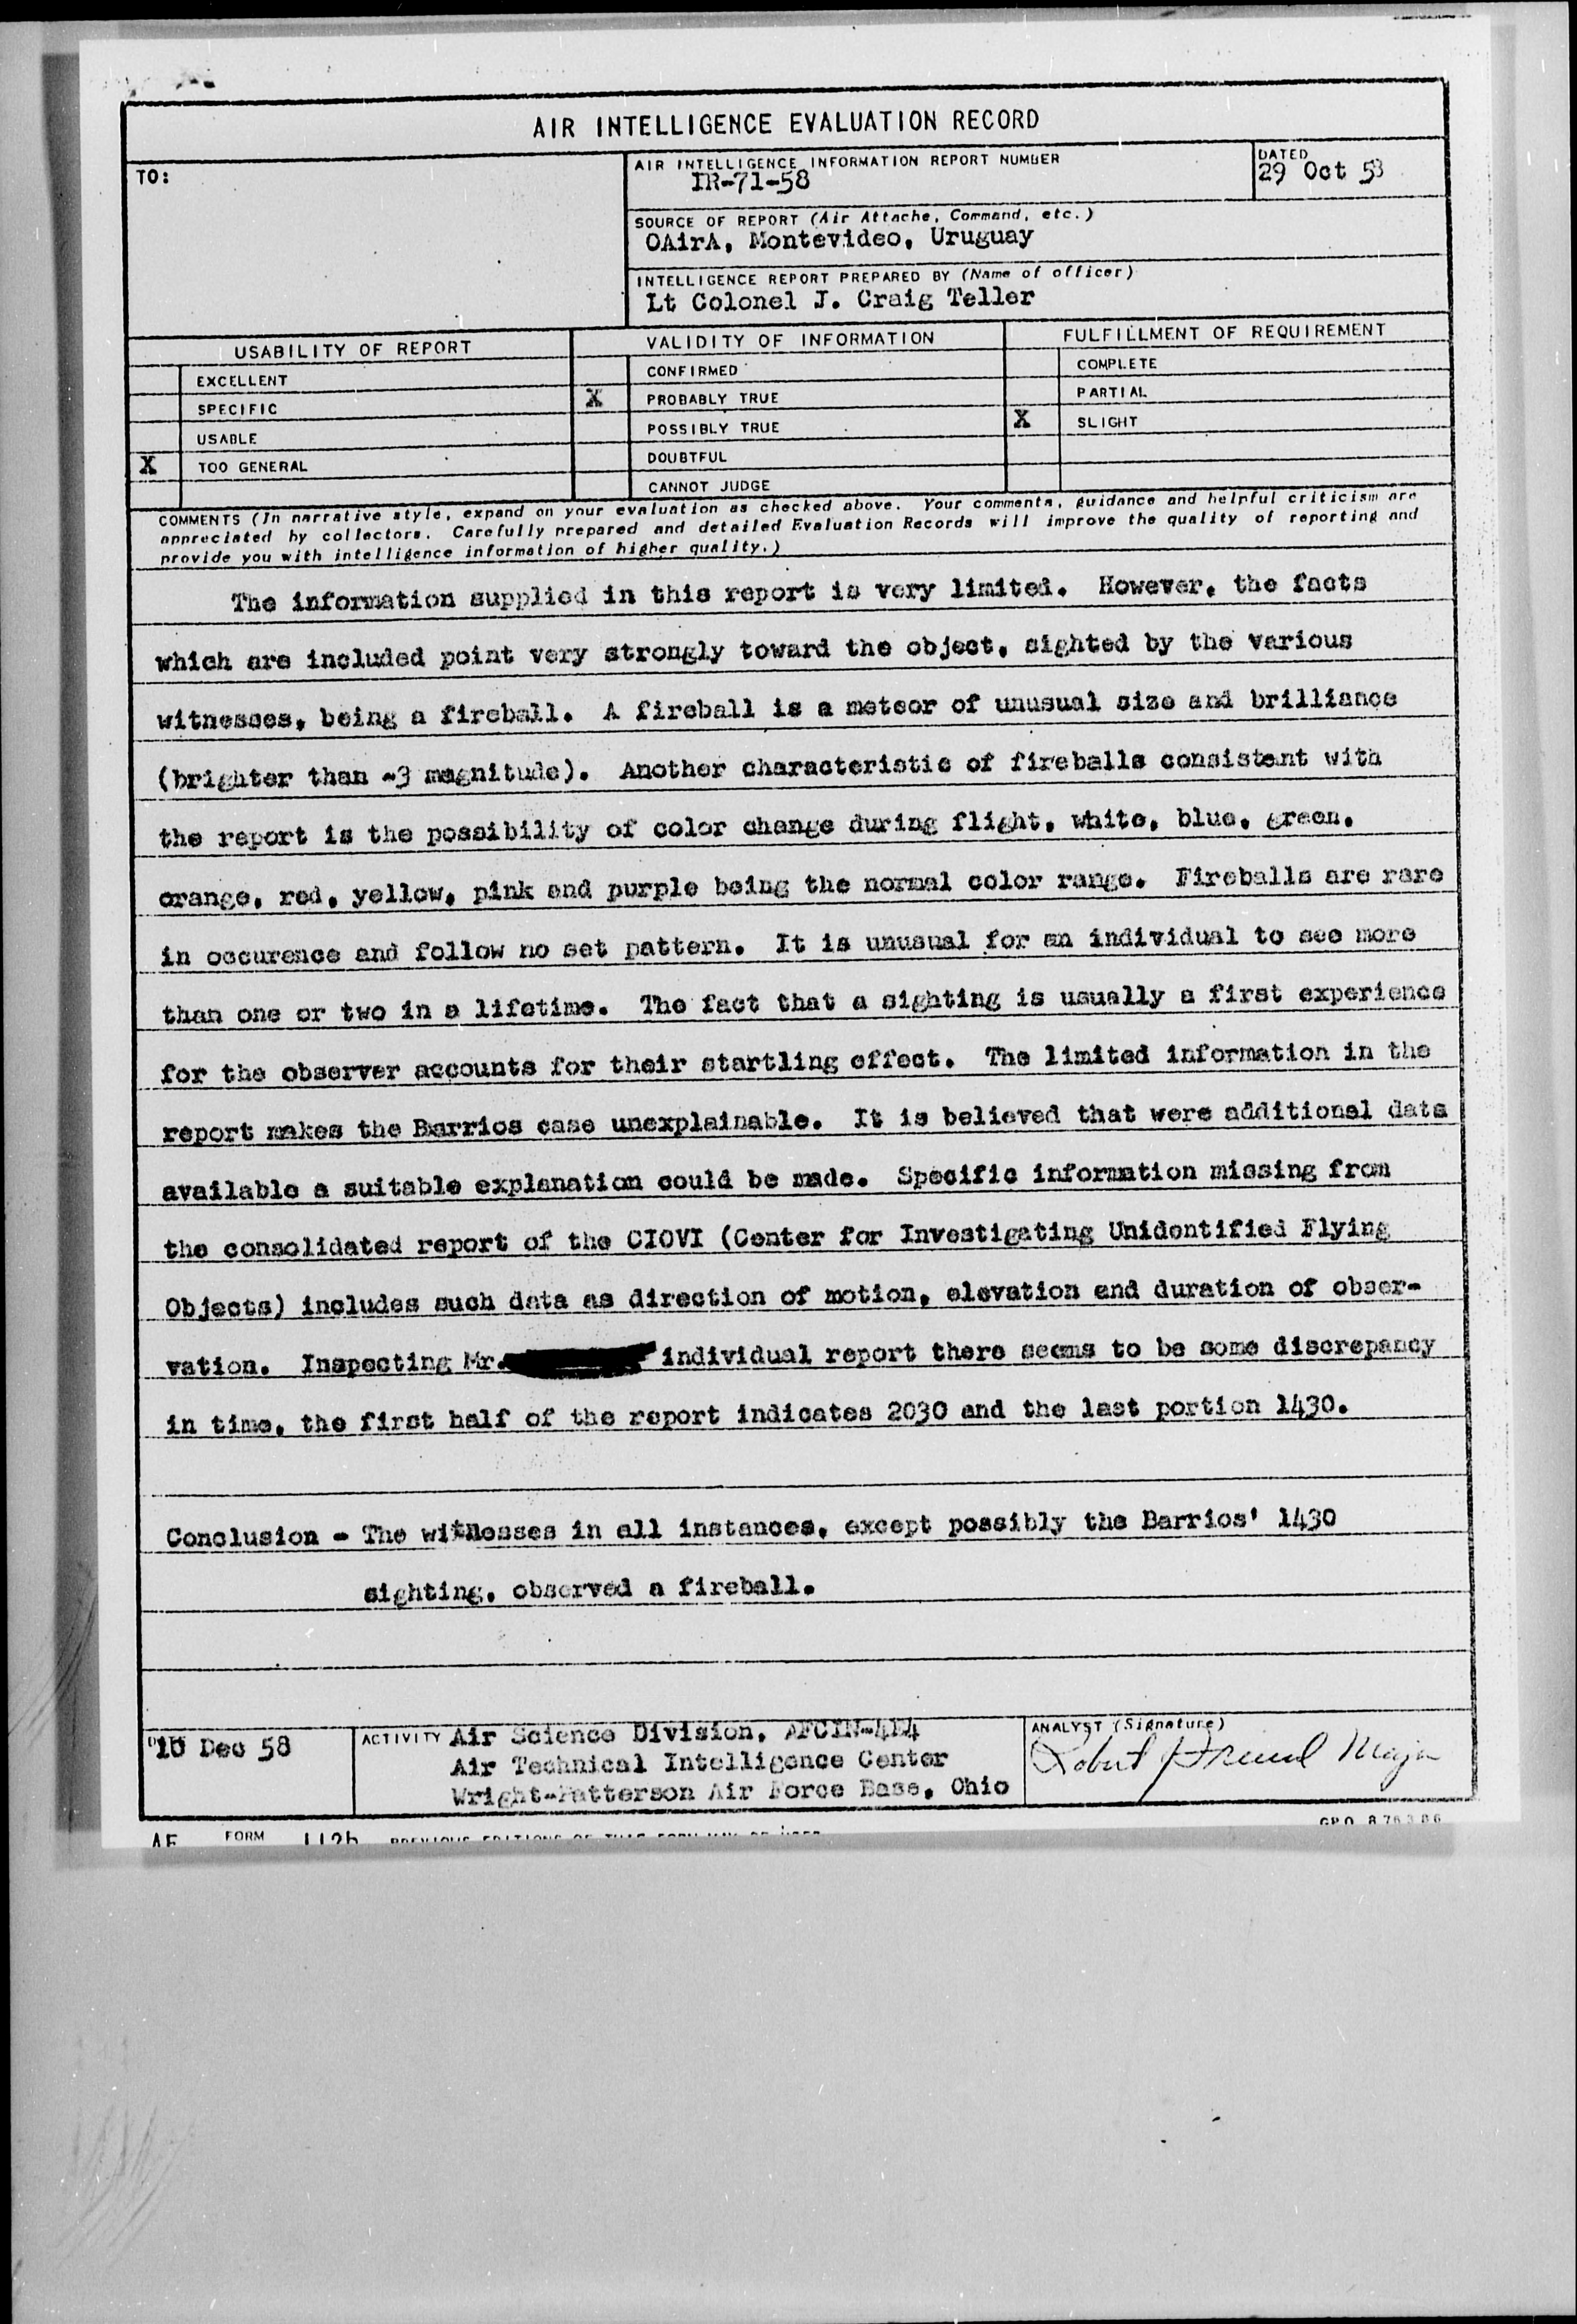 AIR INTELLIGENCE EVALUATION RECORD
TO:
AIR INTELLIGENCE INFORMATION REPORT NUMBER
IR-71-58
DATED
29 Oct 58
SOURCE OF REPORT (Air Attache, Command, etc.)
OAirA, Montevideo, Uruguay
INTELLIGENCE REPORT PREPARED BY (Name of officer)
Lt Colonel J. Craig Teller
USABILITY OF REPORT
EXCELLENT
SPECIFIC
USABLE
X TOO GENERAL
VALIDITY OF INFORMATION
CONFIRMED
X PROBABLY TRUE
POSSIBLY TRUE
DOUBTFUL
CANNOT JUDGE
FULFILLMENT OF REQUIREMENT
COMPLETE
PARTIAL
X SLIGHT
COMMENTS (In narrative style, expand on your evaluation as checked above. Your comments, guidance and helpful criticism are
appreciated by collectors. Carefully prepared and detailed Evaluation Records will improve the quality of reporting and
provide you with intelligence information of higher quality.)
The information supplied in this report is very limited. However, the facts
which are included point very strongly toward the object, sighted by the various
witnesses, being a fireball. A fireball is a meteor of unusual size and brilliance
(brighter than -3 magnitude). Another characteristic of fireballs consistent with
the report is the possibility of color change during flight, white, blue, green,
orange, red, yellow, pink and purple being the normal color range. Fireballs are rare
in occurence and follow no set pattern. It is unusual for an individual to see more
than one or two in a lifetime. The fact that a sighting is usually a first experience
for the observer accounts for their startling effect. The limited information in the
report makes the Barrios case unexplainable. It is believed that were additional data
available a suitable explanation could be made. Specific information missing from
the consolidated report of the CIOVI (Center for Investigating Unidentified Flying
Objects) includes such data as direction of motion, elevation and duration of obser-
vation. Inspecting Mr. individual report there seems to be some discrepancy
in time, the first half of the report indicates 2030 and the last portion 1430.
Conclusion - The witnesses in all instances, except possibly the Barrios' 1430
sighting, observed a fireball.
10 Dec 58
ACTIVITY Air Science Division, AFCIN-4E4
Air Technical Intelligence Center
Wright-Patterson Air Force Base, Ohio
ANALYST (Signature)
Robert Major
AF FORM 112b PREVIOUS EDITIONS OF THIS FORM MAY BE USED
GPO 876386